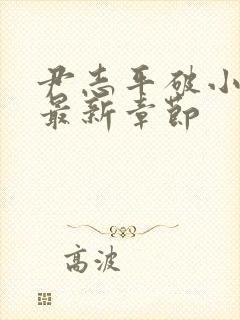 尹志平破小
最新章节
高波